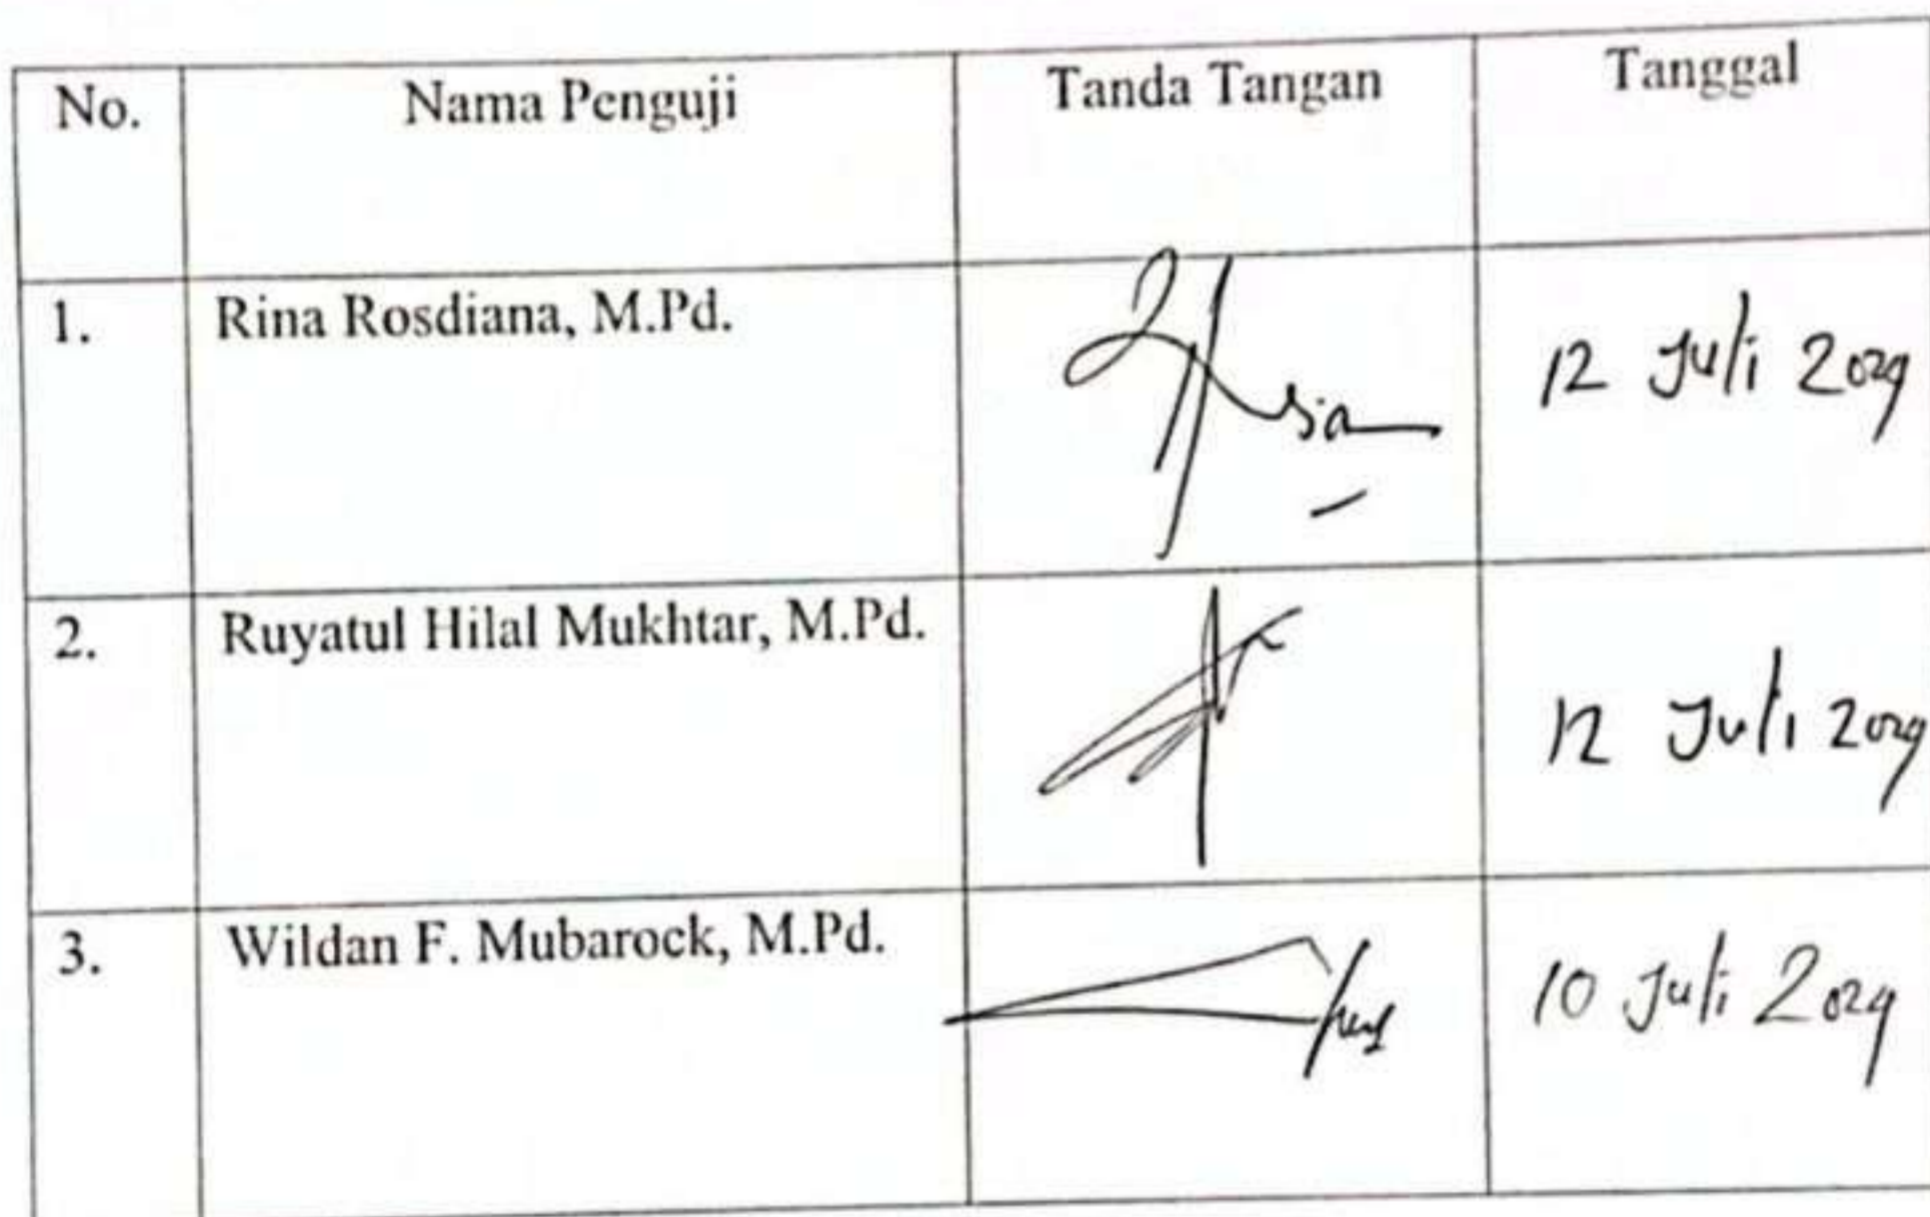 No. Nama Penguji Tanda Tangan Tanggal
1. Rina Rosdiana, M.Pd. 12 Juli 2024
2. Ruyatul Hilal Mukhtar, M.Pd. 12 Juli 2024
3. Wildan F. Mubarock, M.Pd. 10 Juli 2024